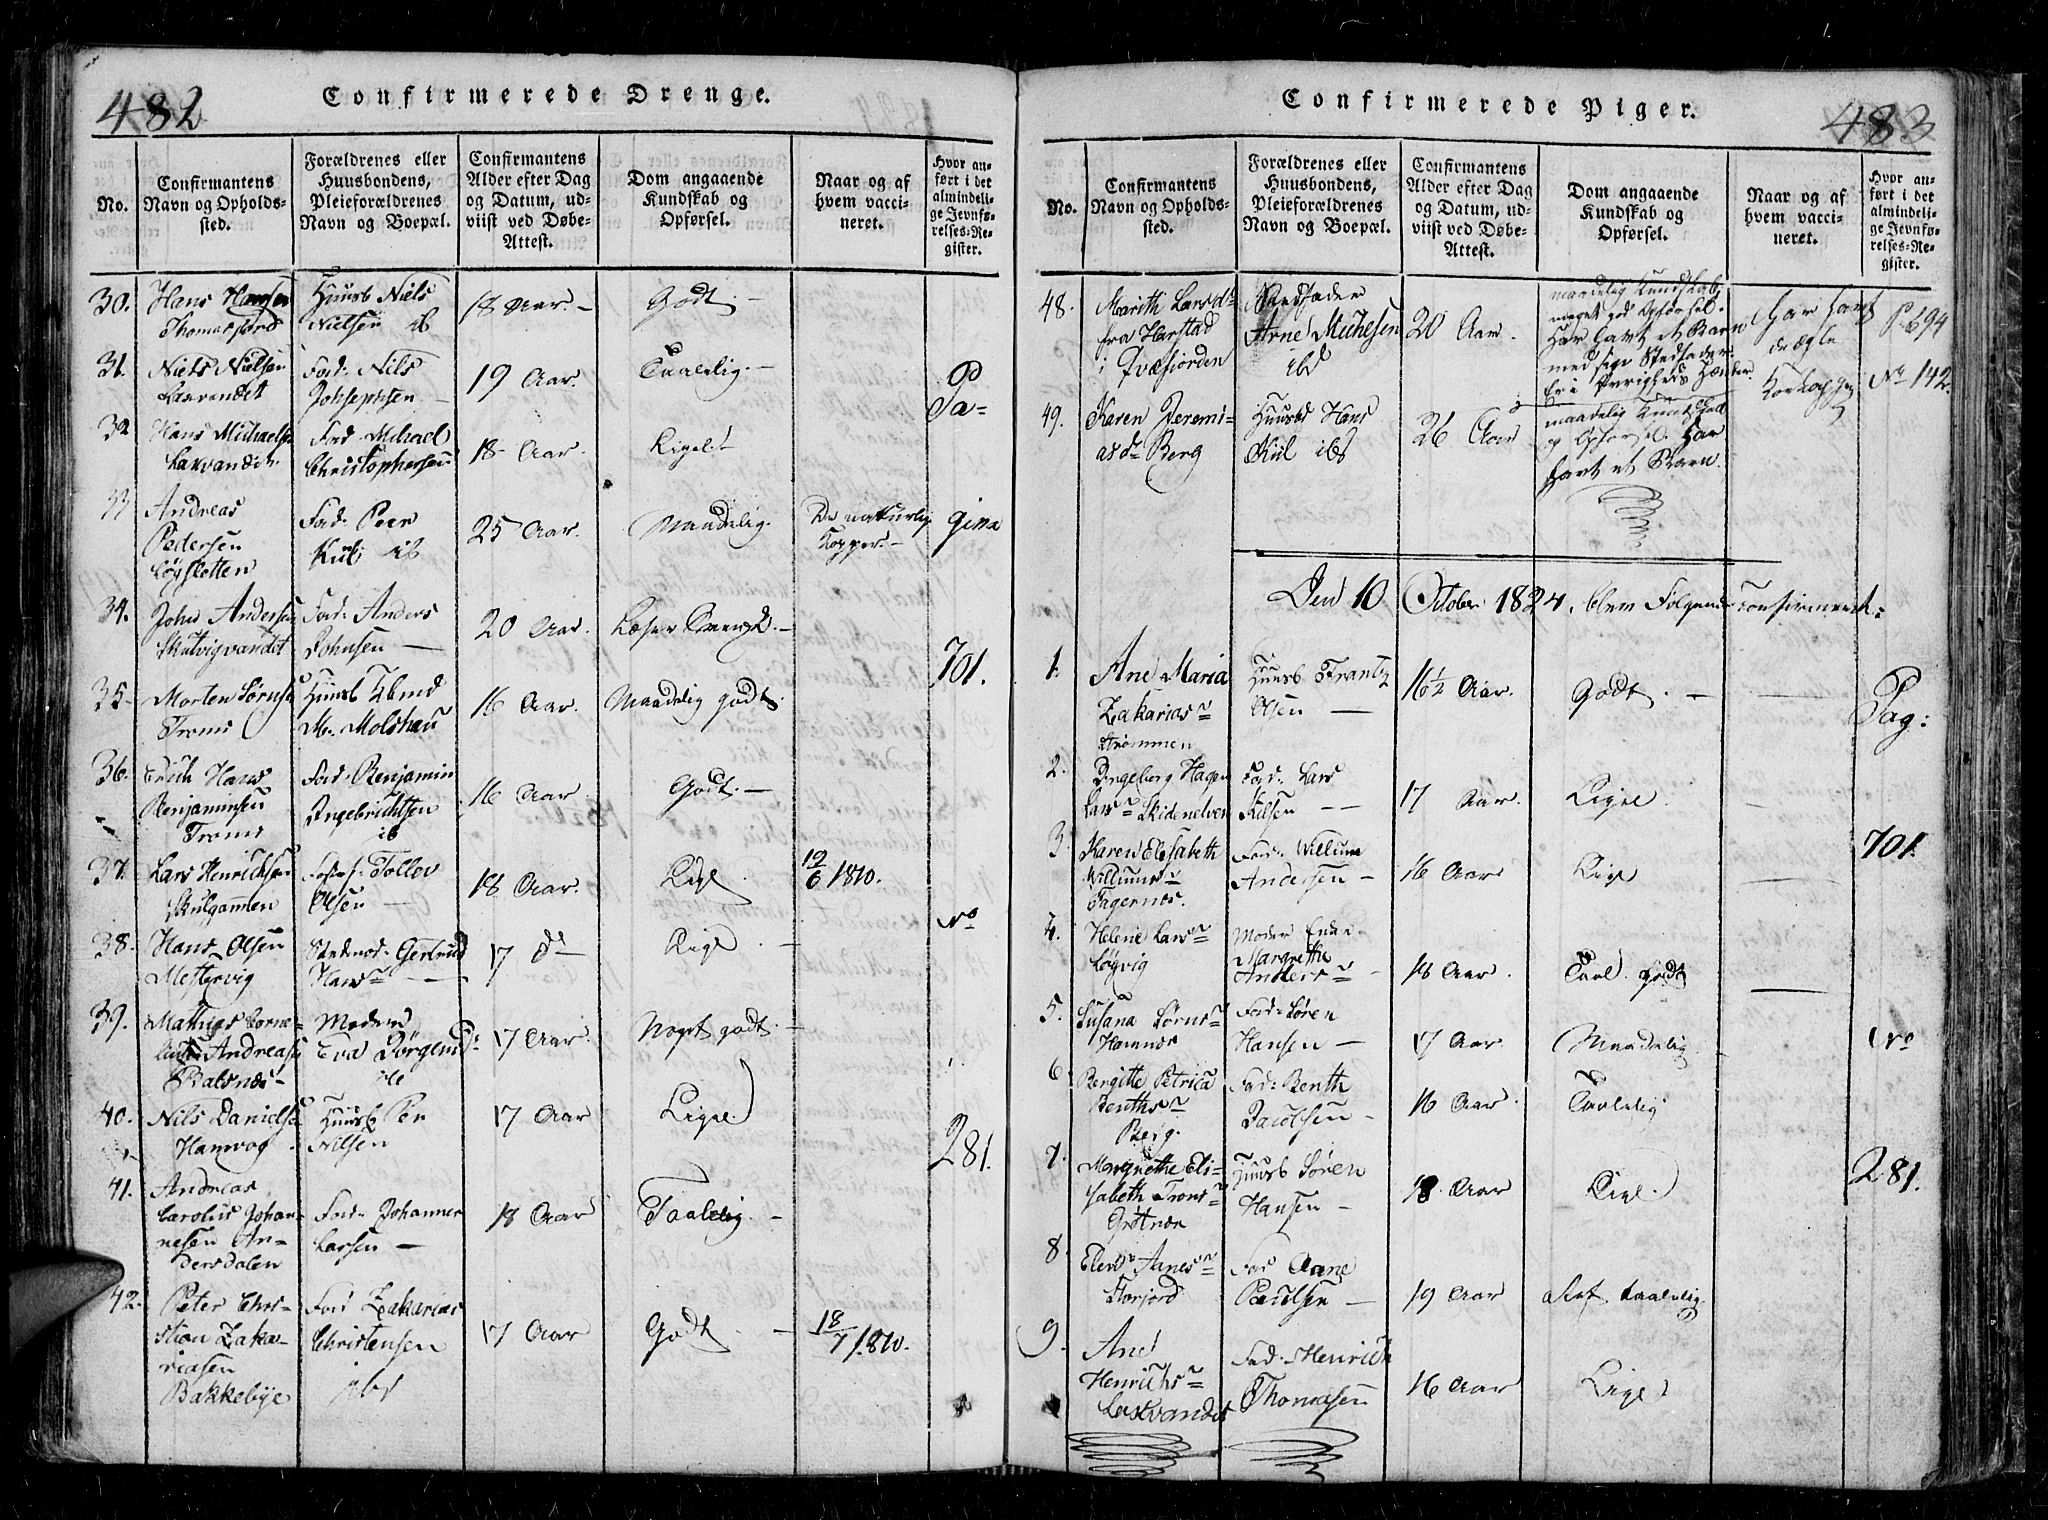 482
Confirmerede Drenge.
No.
Confirmantens
Navn og Opholds-
sted.
Forældrenes eller
Huusbondens,
Pleieforældrenes
Navn og Boepæl.
Confirmantens
Alder efter Dag
og Datum, ud-
viist ved Døbe-
Attest.
Dom angaaende
Kundskab og
Opførsel.
Naar og af
hvem vacci-
neret.
Hvor an-
ført i det
almindeli-
ge Jevnfø-
relses-Re-
gister.
30.
Hans Hansen
Thomasjord
Huusb Niels
Nielsen ib
18 Aar. –
Godt. –
31.
Niels Nielsen
Laxvandet
Fad: Nils
Johsephsen –
19 Aar.
Taalelig. –
32
Hans Michaelsen
Laxvandet.
Fad. Mihael
Christophersen
18 Aar.
Ligelt
Pa=
33
Andreas
Pedersen
Løgsletten
Fad: Peer
Kiil ib
25 Aar.
Maadelig.
De naturlig
Kopper. –
gina
34.
John Andersen
Skulvigvandet
Fad: Anders
Johnsen –
20 Aar.
Læser Svensk. –
701.
35
Morten Sørnsen
Troms
Huusb
M. Molshau
16 Aar.
Maadelig godt.
36.
Erich Hans
Benjaminsen
Troms
Fad: Benjamin
Ingebrichtsen
ib
16 Aar.
Godt. –
37.
Lars Henrichsen
Skulgammen
Tollev
Olsen –
18 Aar.
Lige
12/6 1810.
No
38.
Hans Olsen
Mestervig
Stedmod. Gertrud
Hansn –
17 d–
Lige. –
39.
Mathias Corne=
lius Andreasen
Balsnes –
Moderen
Eva Jørgensd:
17 Aar.
Noget godt. –
40.
Nils Danielsen
Hamvog
Huusb Per
Nilsen
17 Aar
Lige
281.
41.
Andreas
Carolus Johan=
nesen An=
dersdalen
Fad: Johannes
Larsen –
18 Aar
Taalelig –
42.
Peter Chri=
stian Zaka=
riasen
Bakkebye
Fad Zakarias
Christensen
ibd
17 Aar
Godt. –
18/7 1810.
Confirmerede Piger.
483
No.
Confirmantens
Navn og Opholds-
sted.
Forældrenes eller
Huusbondens,
Pleieforældrenes
Navn og Boepæl.
Confirmantens
Alder efter Dag
og Datum, ud-
viist ved Døbe-
Attest.
Dom angaaende
Kundskab og
Opførsel.
Naar og af
hvem vacci-
neret.
Hvor an-
ført i det
almindeli-
ge Jevnfø-
relses-Re-
gister.
48.
Marith Larsdr
fra Harstad
i Qvæfiorden
Stedfader
Arne Michelsen
ibd
20 Aar.
maadelig Kundskab,
meget god Opførsel.
Har havt et Barn
med sige Stedfader.
Er i Øvrigheds Hænder.
Har havt
P. 694
No 142.
49.
Karen Jeremi=
asdr Berg
Huusbd Hans
Kiil ibd
26 Aar
maadelig Kundskab
og Opførsel. Har
havt et Barn.
Den 10 October 1824, blev Følgende Confirmeret:
1.
Ane Maria
Zakariasn
Strømmen
Huusb Frantz
Olsen –
16½ Aar.
Godt. –
Pag:
2.
Ingeborg Hagen
Larsn Skidenelven
Fad: Lars
Killsen – –
17 Aar.
Lige.
3.
Karen Elisabeth
Willumsn
Fagernes.
Fad: Willum
Andersen –
16 Aar
Lige
701.
4.
Helene Larsn
Løgvig
Moder
Margrethe
Andersn –
18 Aar.
Taal. godt
5.
Susana Sørnsn
Hamnes
Fad: Søren
Hansen –
17 Aar.
Maadelig
No
6.
Bergitte Petrica
Benthsn
Berg.
Fad: Benth
Jacobsen –
16 Aar.
Taalelig
7.
Margrethe Eli=
sabeth Tronsn
Grøtnæs
Huusb Søren
Hansen –
18 Aar
Lige
281.
8.
Elen Aanesn
Storjord
Fad Aane
Poulsen –
19 Aar
Ret taalelig.
9.
Ane
Henrichsn
Laxvandet
Fad: Henrich
Thomasen
16 Aar
Lige